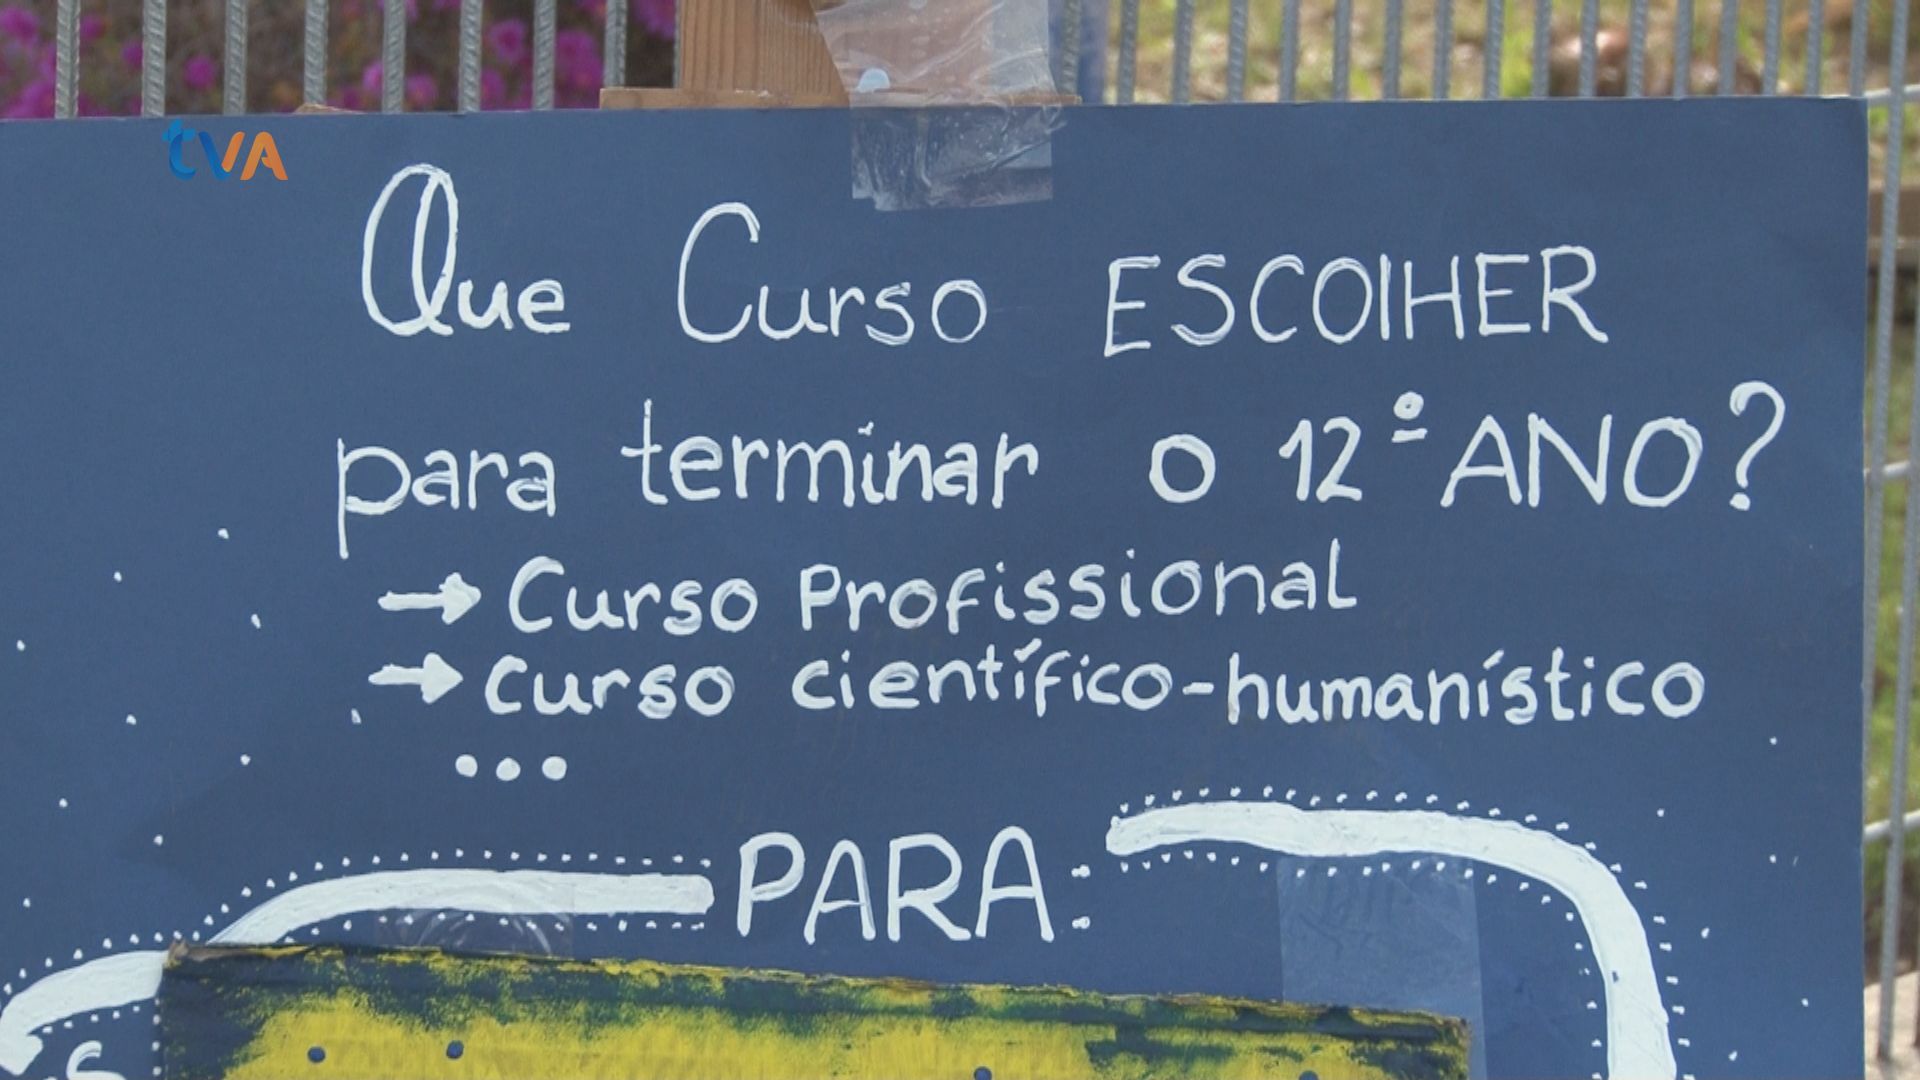 tVA
Que Curso ESCOlHER
para terminar o 12º ANO?
→ Curso Profissional
→ Curso científico-humanístico
...
PARA: